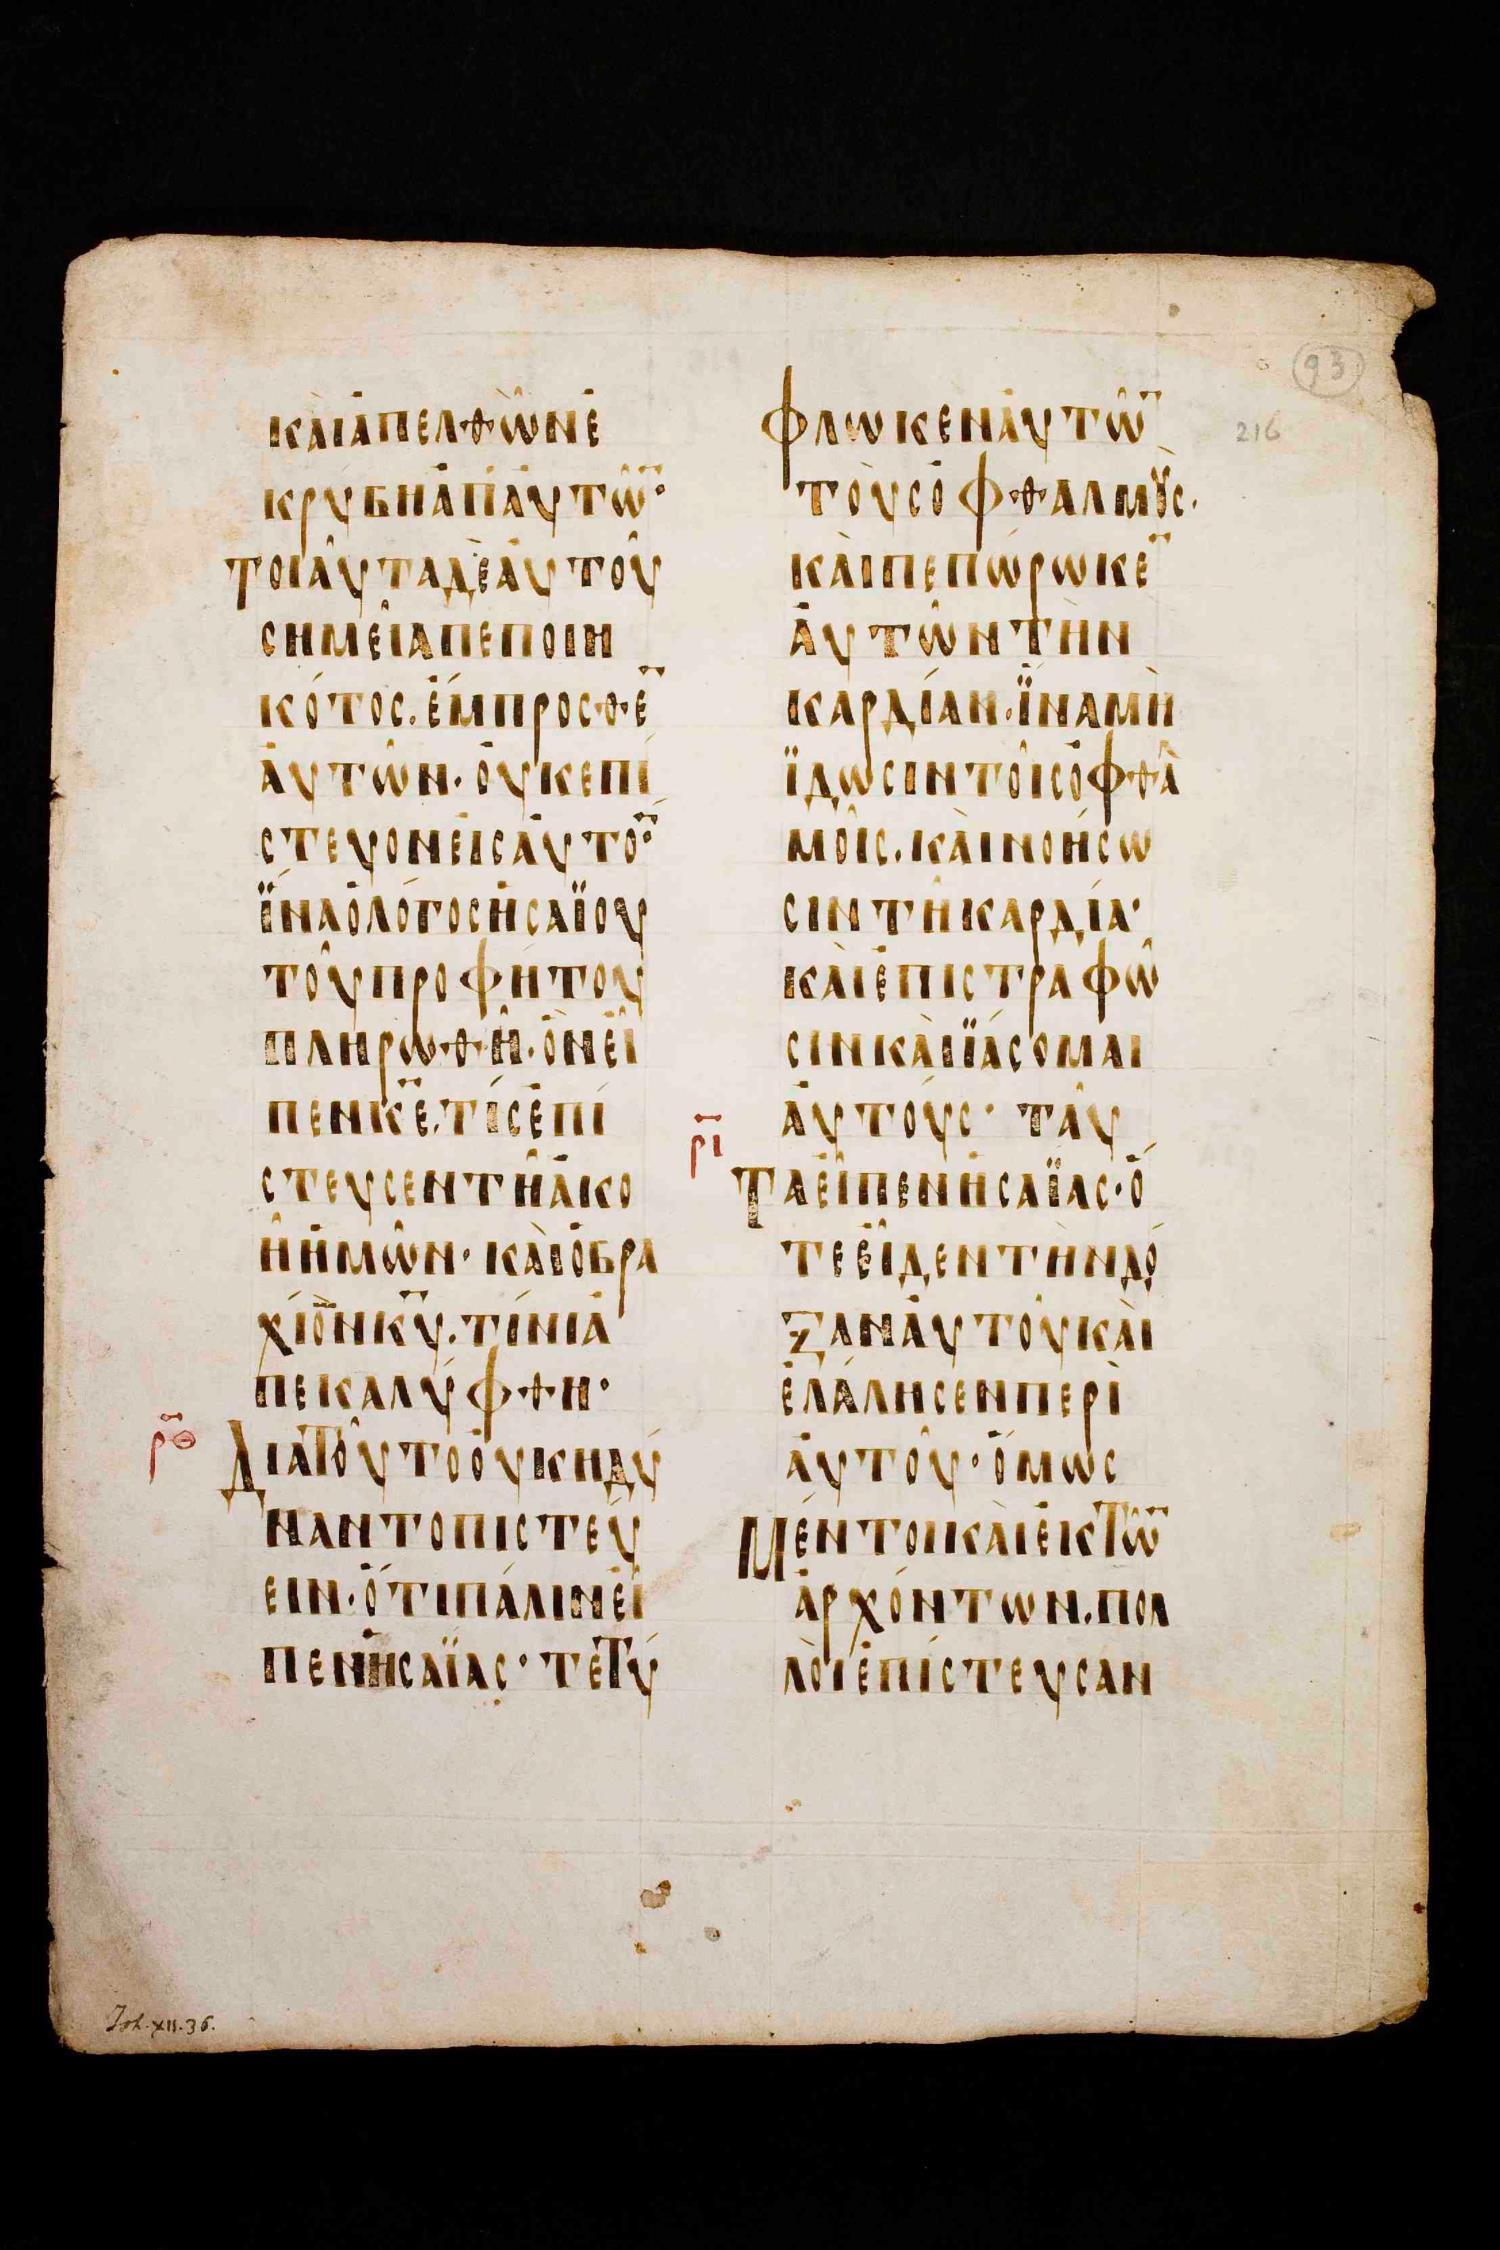 93
216
ΚΑῚΑΠΕΛΘῺΝΕ
ΚΡΎΒΗἈΠ̓ΑΥΤΩ̅·
ΤΟΙΑῦΤΑΔῈΑΥΤΟῦ
ΣΗΜΕῖΑΠΕΠΟΙΗ
ΚΌΤΟΣ.ΕΜΠΡΟΣΘΕ̅
ΑΥΤῶΝ·ΟΥΚΕΠΊ
ΣΤΕΥΟΝΕΙΣΑΥΤΟ̅·
ΪΝΑΟΛΌΓΟΣΗΣΑΪΟΥ
ΤΟῦΠΡΟΦΉΤΟΥ
ΠΛΗΡΩΘῆ·ὋΝΕΙ
ΠΕΝΚ̅Ε̅.ΤΊΣΕΠΊ
ΣΤΕΥΣΕΝΤῆΑΚΟ
ῆΗΜῶΝ·ΚΑῚΟΒΡΑ
ΧΊΟΝΚ̅Υ̅.ΤΊΝΙΑ
ΠΕΚΑΛΎΦΘΗ·
ρ̅θ̅
ΔΙΑΤΟῦΤΟΟΥΚΗΔΎ
ΝΑΝΤΟΠΙΣΤΕΎ
ΕΙΝ·ὍΤΙΠΆΛΙΝΕΙ
ΠΕΝΗΣΑΪΑΣ·ΤΕΤΎ
ΦΛΩΚΕΝΑΥΤΩ̅
ΤΟῪΣΟΦΘΑΛΜΟῪΣ·
ΚΑῚΠΕΠΏΡΩΚΕ̅
ΑΥΤῶΝΤῊΝ
ΚΑΡΔΊΑΝ·ΪΝΑΜῊ
ΪΔΩΣΙΝΤΟῖΣΟΦΘΑ
ΜΟῖΣ.ΚΑῚΝΟΉΣΩ
ΣΙΝΤῆΚΑΡΔΊΑ·
ΚΑῚΕΠΙΣΤΡΑΦῶ
ΣΙΝΚΑῚΪΆΣΟΜΑΙ
ΑΥΤΟΎΣ·ΤΑῦ
ρ̅ι̅
ΤΑΕΙΠΕΝΗΣΑΪΑΣ·Ὅ
ΤΕΕΙΔΕΝΤῊΝΔΌ
ΞΑΝΑΥΤΟῦΚΑῚ
ΕΛΆΛΗΣΕΝΠΕΡῚ
ΑΥΤΟῦ·ὍΜΩΣ
ΜΈΝΤΟΙΚΑῚΕΚΤΩ̅
ΑΡΧΌΝΤΩΝ.ΠΟΛ
ΛΟῚΕΠΊΣΤΕΥΣΑΝ
Joh. XII. 36.